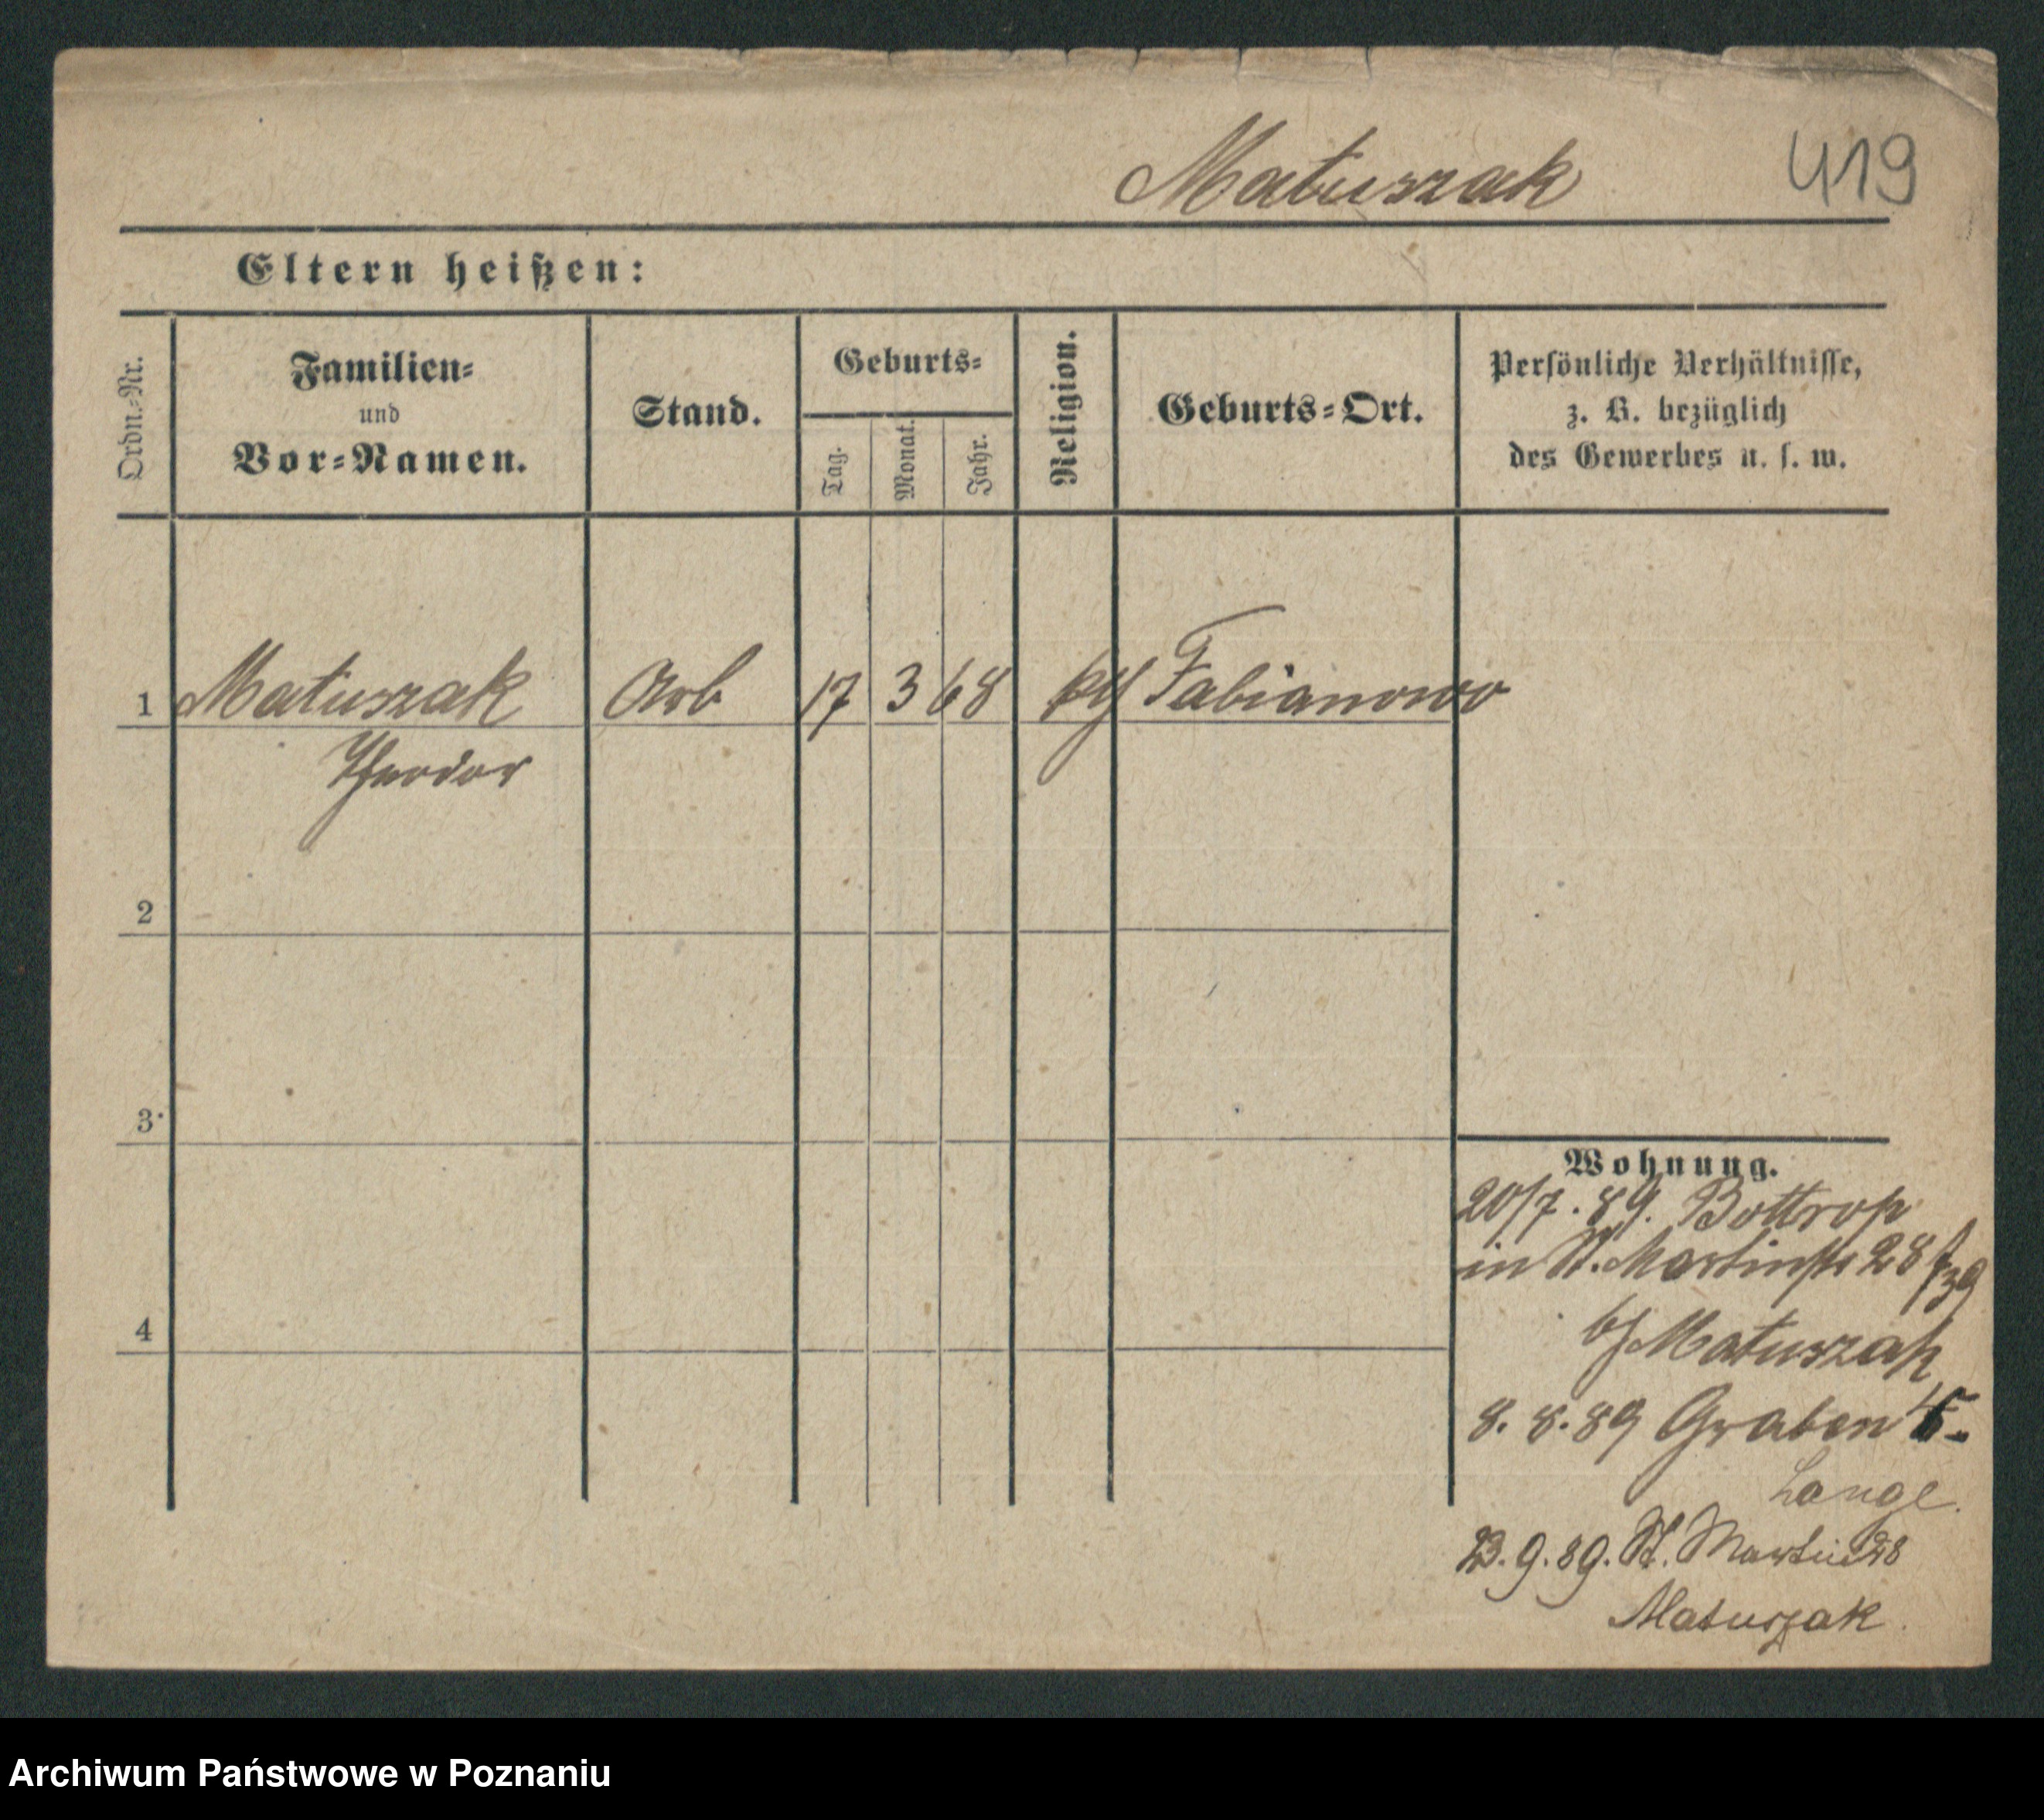 Matuszak 419
Eltern heißen:
Ordn.-Nr.
Familien-
und
Vor-Namen.
Stand.
Geburts-
Tag.
Monat.
Jahr.
Religion.
Geburts-Ort.
Persönliche Verhältnisse,
z. B. bezüglich
des Gewerbes u. s. w.
1 Matuszak Arb 17 3 68 kth Fabianowo
Theodor
2
3
4
Wohnung.
20/7. 89. Bottrop
in St. Martinstr 28
b/ Matuszak
8. 8. 89 Graben
Lange.
23. 9. 89. St. Martin 28
Matuszak
Archiwum Państwowe w Poznaniu